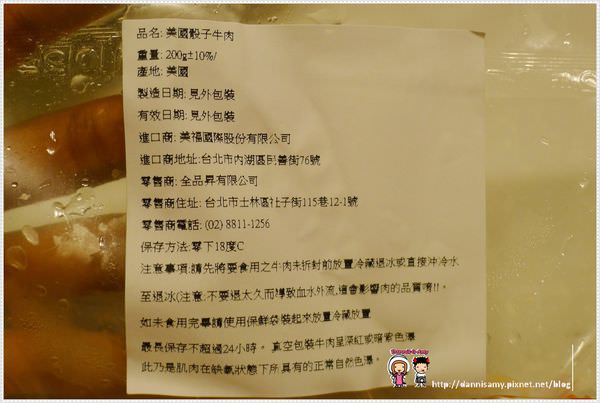 品名: 美國骰子牛肉
重量: 200g±10%/
產地: 美國
製造日期: 見外包裝
有效日期: 見外包裝
進口商: 美福國際股份有限公司
進口商地址:台北市內湖區民善街76號
零售商: 全品昇有限公司
零售商住址: 台北市士林區社子街115巷12-1號
零售商電話: (02) 8811-1256
保存方法:零下18度C
注意事項:請先將要食用之牛肉未拆封前放置冷藏退冰或直接沖冷水
至退冰(注意:不要退太久而導致血水外流,這會影響肉的品質唷!!。
如未食用完畢請使用保鮮袋裝起來放置冷藏放置
最長保存不超過24小時。 真空包裝牛肉呈深紅或暗紫色澤
此乃是肌肉在缺氧狀態下所具有的正常自然色澤。
http://dannisamy.pixnet.net/blog